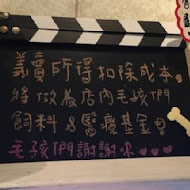 義賣所得扣除成本
將做為店內毛孩們
飼料&醫療基金
毛孩們謝謝您